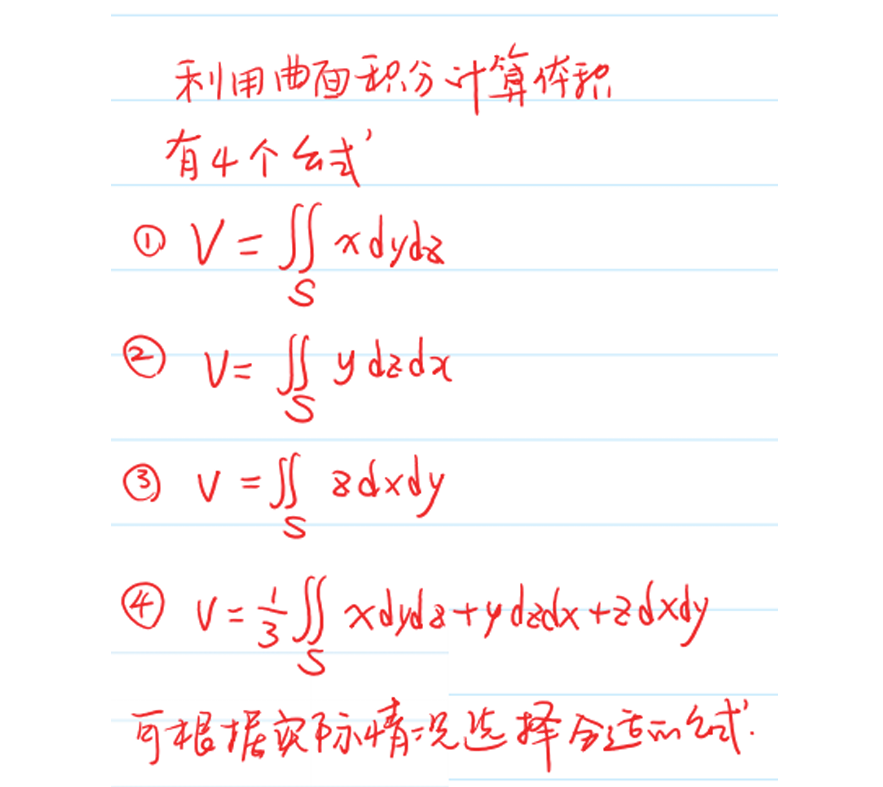 利用曲面积分计算体积
有4个公式
① V = ∬_S x dydz
② V = ∬_S y dzdx
③ V = ∬_S z dxdy
④ V = 1/3 ∬_S x dydz + y dzdx + z dxdy
可根据实际情况选择合适的公式.